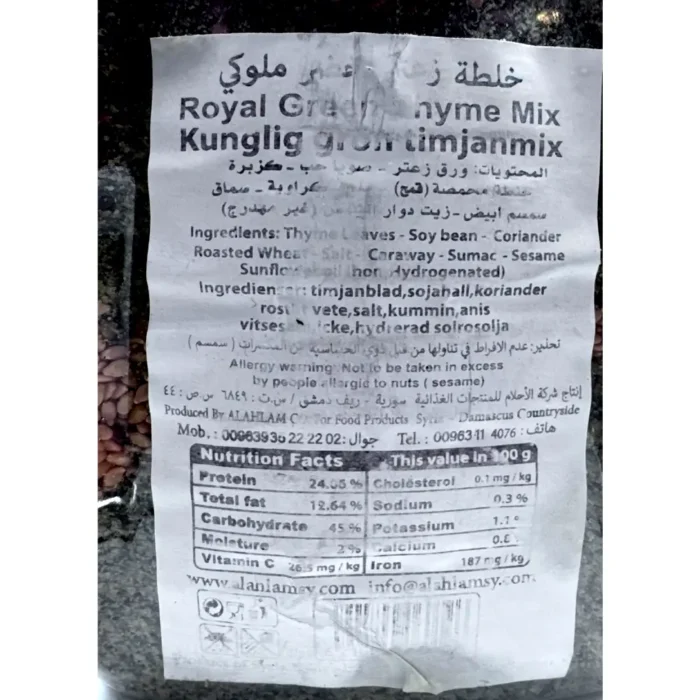 خلطة ملوكي
Royal Green Thyme Mix
Kunglig grön timjanmix
المحتويات: ورق زعتر - صويا حب - كزبرة
حنطة محمصة (قمح) كراوية - سماق
سمسم أبيض - زيت دوار (غير مهدرج)
Ingredients: Thyme Leaves - Soy bean - Coriander
Roasted Wheat - Salt - Caraway - Sumac - Sesame
Hydrogenated)
timjanblad,sojahall,koriander
vete,salt,kummin,anis
hydrerad solrosolja
تحذير: عدم الافراط في تناولها من قبل ذوي الحساسية من (سمسم)
Allergy warning: Not to be taken in excess
by people allargic to nuts ( sesame)
إنتاج شركة الأحلام للمنتجات الغذائية سورية - ريف دمشق / س.ت: ٦٨٤٩ ص ص: ٤٤
Produced By ALAHLAM For Food Products Damascus Countryside
Mob.: جوال: Tel.: 00963 11 4076 هاتف:
Nutrition Facts This value in 100 g
Protein Cholesterol 0.1 mg / kg
Total fat 12.64 % Sodium 0,3 %
Carbohydrate 45 % Potassium
Moisture 2 % Calcium
Vitamin C 26.5 mg / kg Iron 187 mg / kg